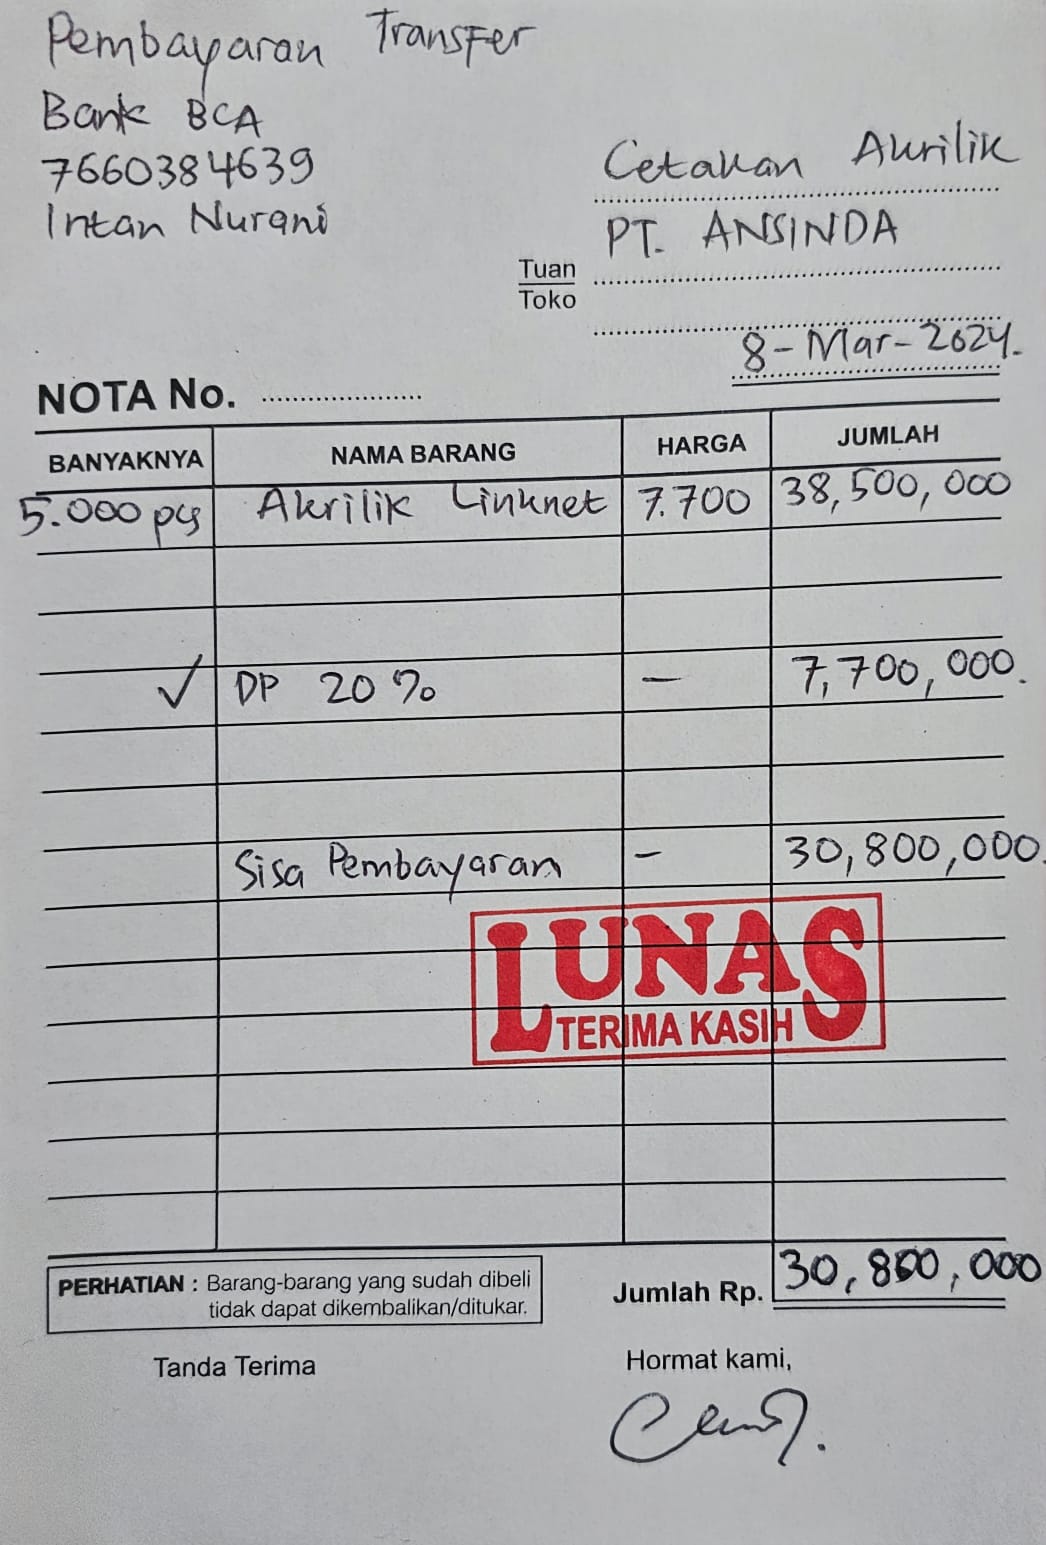 Pembayaran Transfer
Bank BCA
7660384639
Intan Nurani
Cetakan Akrilik
PT. ANSINDA
Tuan
Toko
8-Mar-2024.
NOTA No.
BANYAKNYA NAMA BARANG HARGA JUMLAH
5.000 pcs Akrilik Linknet 7.700 38,500,000
✓ DP 20% - 7,700,000.
Sisa Pembayaran - 30,800,000.
LUNAS
TERIMA KASIH
PERHATIAN : Barang-barang yang sudah dibeli
tidak dapat dikembalikan/ditukar.
Jumlah Rp. 30,800,000
Tanda Terima Hormat kami,